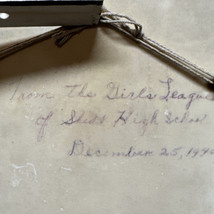 From the Girls League
of High School
December 25, 194